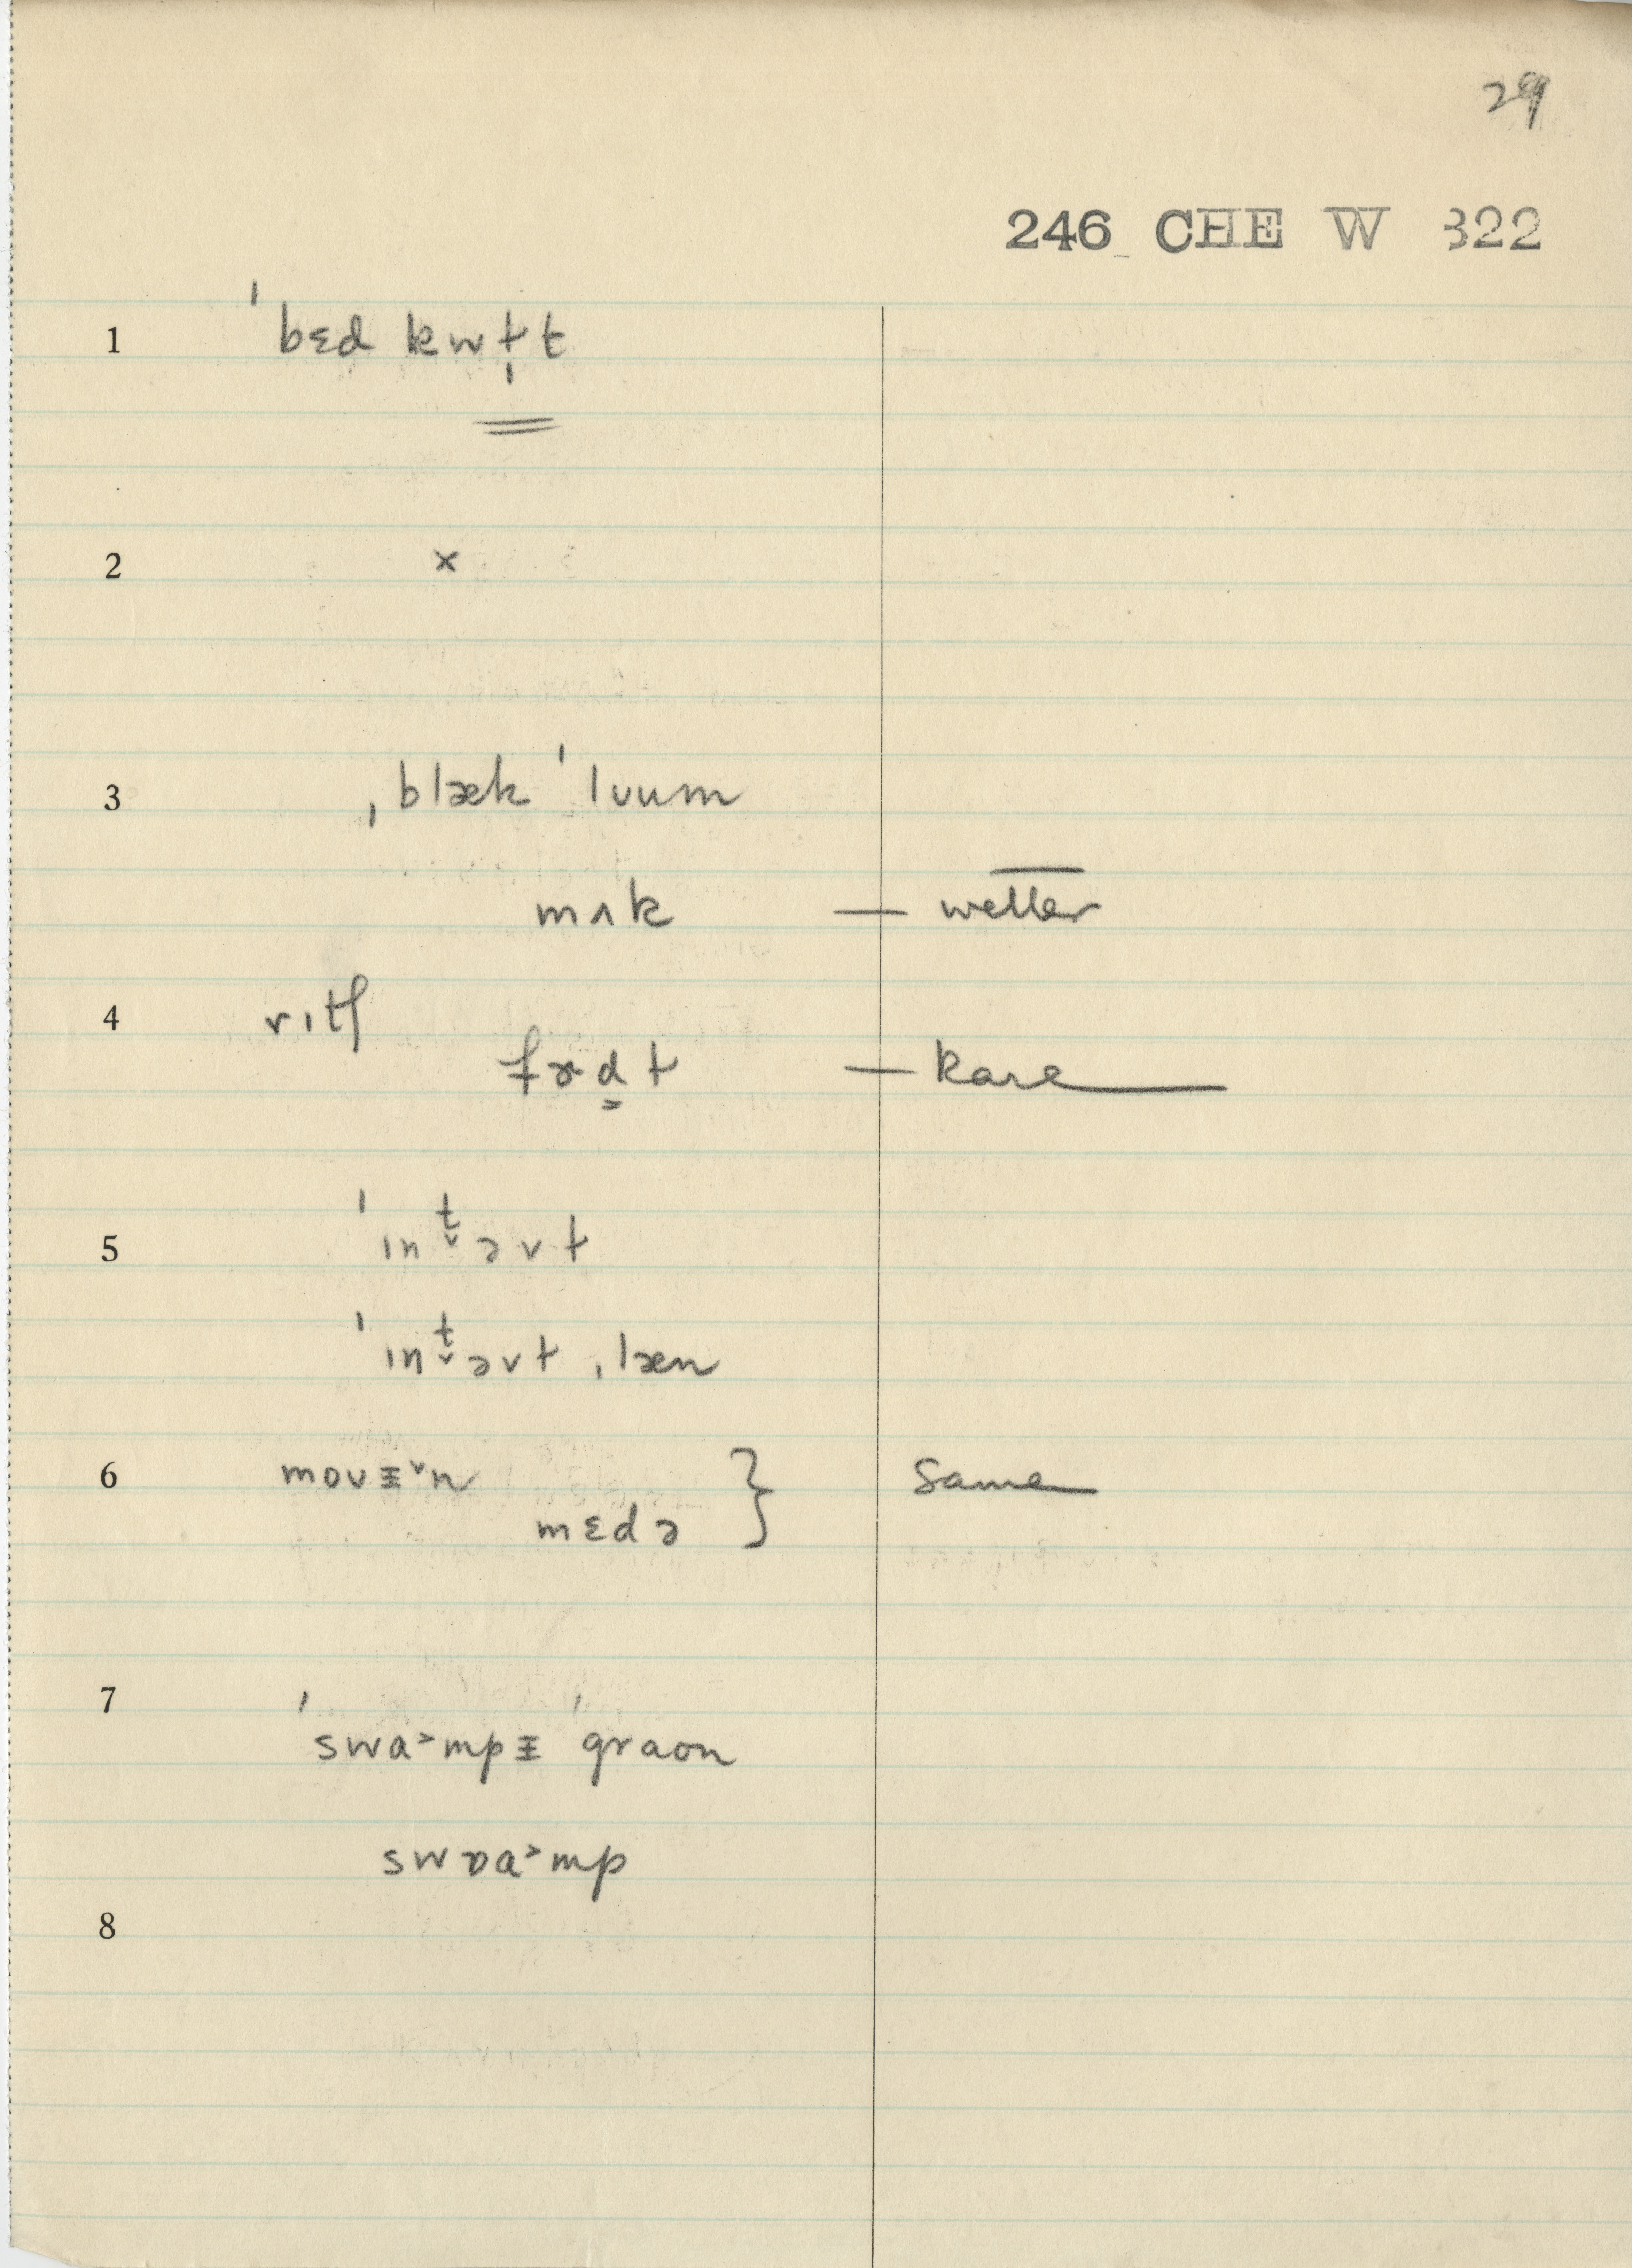 29
246 CHE W 322
1 ˈbɛd kwɫ̩t
2 x
3 ˌblæk ˈluum
mʌk — wetter
4 rɪtʃ
— Rare
5 ˈɪnt̬əvɫ
ˈɪnt̬əvɫ ˌlæn
6 movɪ̵˅n
mɛdə } Same
7 ˈswɑ˃mpɪ̵ ˈgraʊn
swɒɑ˃mp
8